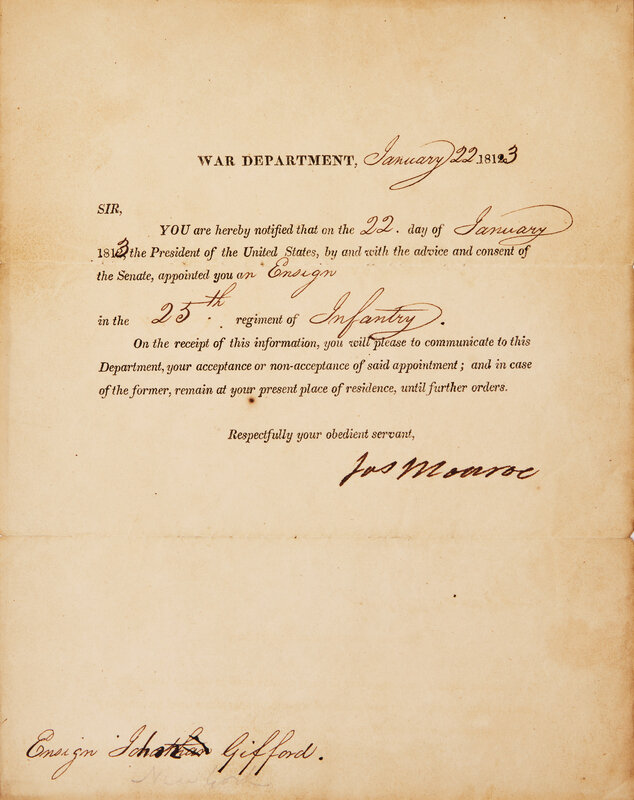 WAR DEPARTMENT, January 22. 1813
SIR,
YOU are hereby notified that on the 22. day of January
1813, the President of the United States, by and with the advice and consent of
the Senate, appointed you an Ensign
in the 25th. regiment of Infantry.
On the receipt of this information, you will please to communicate to this
Department, your acceptance or non-acceptance of said appointment; and in case
of the former, remain at your present place of residence, until further orders.
Respectfully your obedient servant,
Jas Monroe
Ensign Gifford.